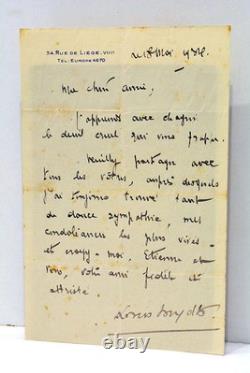 34, RUE DE LIÈGE, VIIIe
TEL: EUROPE 4670
le 18 Mai
Mon cher ami,
J'apprends avec chagrin
le deuil cruel qui vous frappe.
Veuillez partager avec
tous les vôtres, auprès desquels
j'ai toujours trouvé tant
de douce sympathie, mes
condoléances les plus vives
et croyez-moi,
votre ami fidèle et
attristé
Louis Beydts